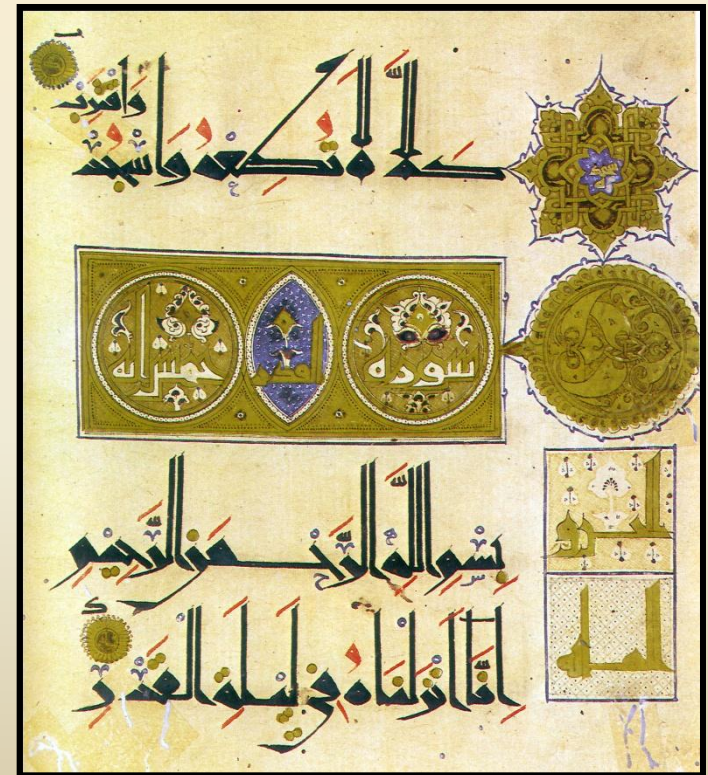 كَلَّا لَا تُطِعْهُ وَاسْجُدْ وَاقْتَرِبْ
سورة القدر خمس اية
بِسْمِ اللَّهِ الرَّحْمَنِ الرَّحِيمِ
اِنَّا اَنْزَلْنَاهُ فِي لَيْلَةِ الْقَدْرِ